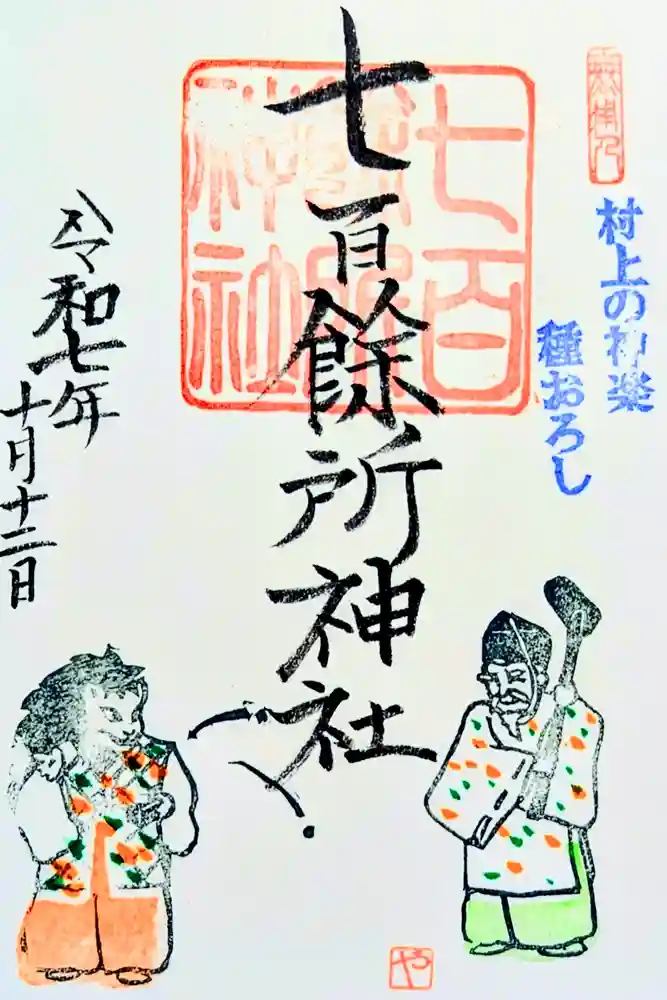 村上の神楽
種おろし
七百餘所神社
七百
餘所
神社
令和七年
十月十二日